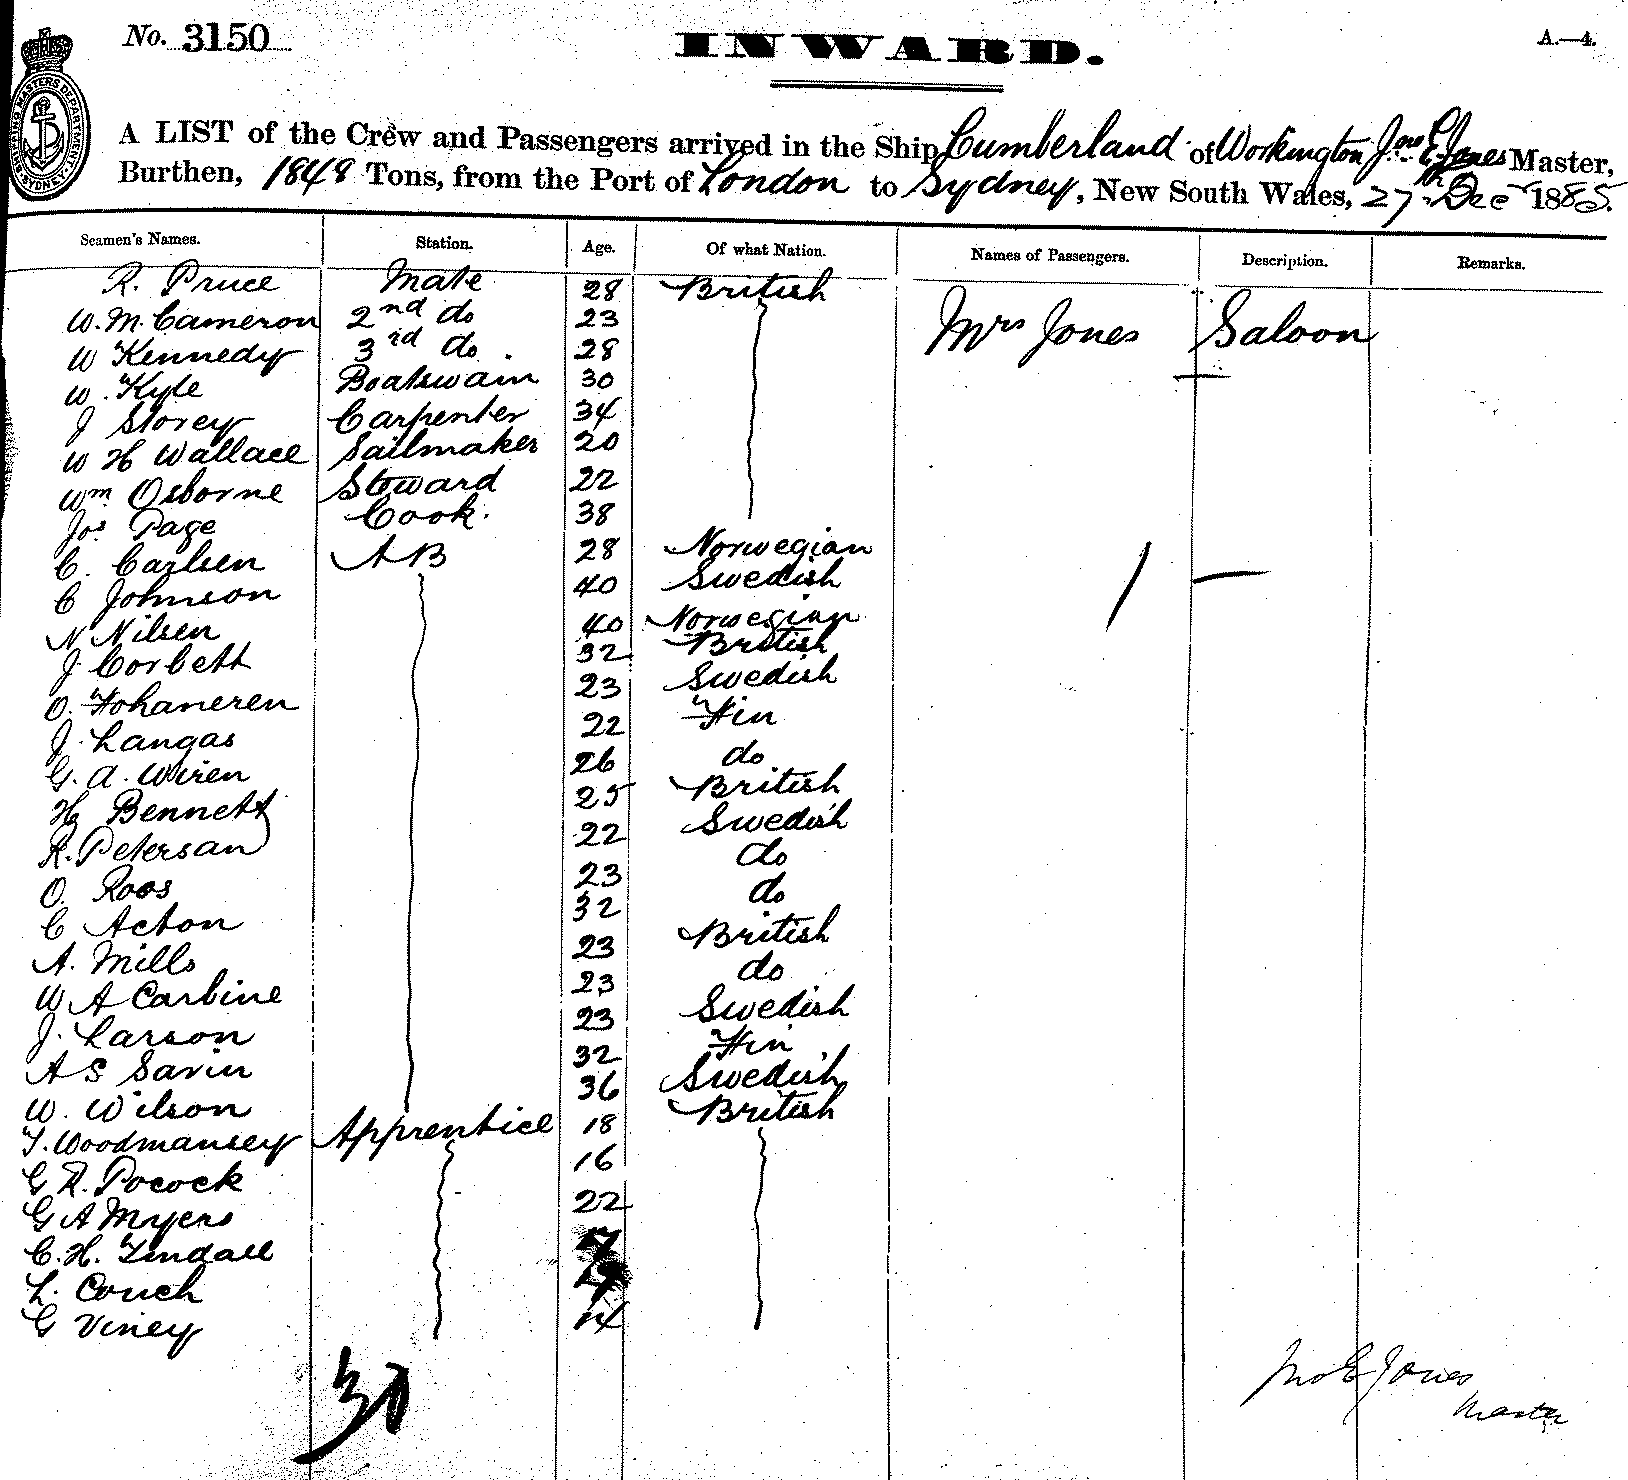 No. 3150
INWARD.
A.—4.
A LIST of the Crew and Passengers arrived in the Ship Cumberland of Workington Jno E Jones Master,
Burthen, 1848 Tons, from the Port of London to Sydney, New South Wales, 27th Decr 1885.
Seamen's Names. Station. Age. Of what Nation. Names of Passengers. Description. Remarks.
R. Pruce Mate 28 British
W. M. Cameron 2nd do 23 Mrs Jones Saloon
W Kennedy 3rd do. 28
W. Kyle Boatswain 30
J Storey Carpenter 34
W H Wallace Sailmaker 20
Wm Osborne Steward 22
Jos Page Cook. 38
C. Carlsen AB 28 Norwegian
C Johnson 40 Swedish
N Nilsen 40 Norwegian
J. Corbett 32 British
O. Fohaneren 23 Swedish
J. Langas 22 Fin
G. A. Wiren 26 do
H Bennett 25 British
R. Petersan 22 Swedish
O. Roos 23 do
C Acton 32 do
A. Mills 23 British
W A Carbine 23 do
J. Larson 23 Swedish
A S Savin 32 Fin
W. Wilson 36 Swedish
T. Woodmansey Apprentice 18 British
G R. Pocock 16
G A Myers 22
C. H. Tindall 17
L. Couch
G Viney
30
Jno E Jones
Master